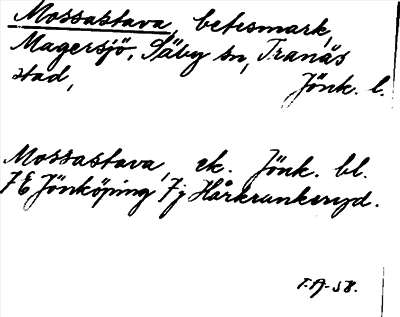 Mossastava, betesmark,
Magersjö, Säby sn, Tranås
stad, Jönk. l.
Mossastava, ek. Jönk. bl.
7E Jönköping, 7j Hårkrankeryd.
T.A-58.